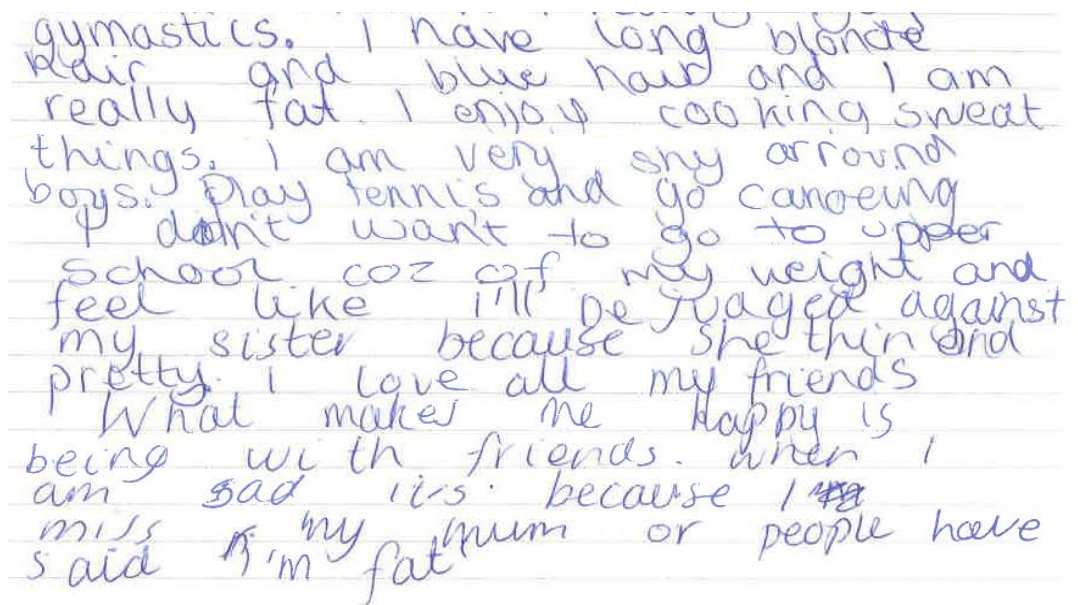 gymastics. I have long blonde
hair and blue hair and I am
really fat. I enjoy cooking sweat
things. I am very shy arround
boys. Play tennis and go canoeing
I don't want to go to upper
School coz of my weight and
feel like i'll be judged against
my sister because she thin and
pretty. I love all my friends
What makes me happy is
being with friends. when I
am sad its because I
miss my mum or people have
said I'm fat